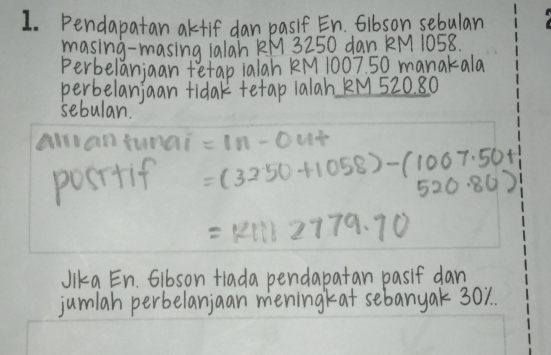 1. Pendapatan aktif dan pasif En. Gibson sebulan
masing-masing ialah RM 3250 dan RM 1058.
Perbelanjaan tetap ialah RM 1007.50 manakala
perbelanjaan tidak tetap ialah RM 520.80
sebulan.
Aliran tunai = In - Out
positif = (3250 + 1058) - (1007.50 +
520.80)
= RM 2779.70
Jika En. Gibson tiada pendapatan pasif dan
jumlah perbelanjaan meningkat sebanyak 30%.